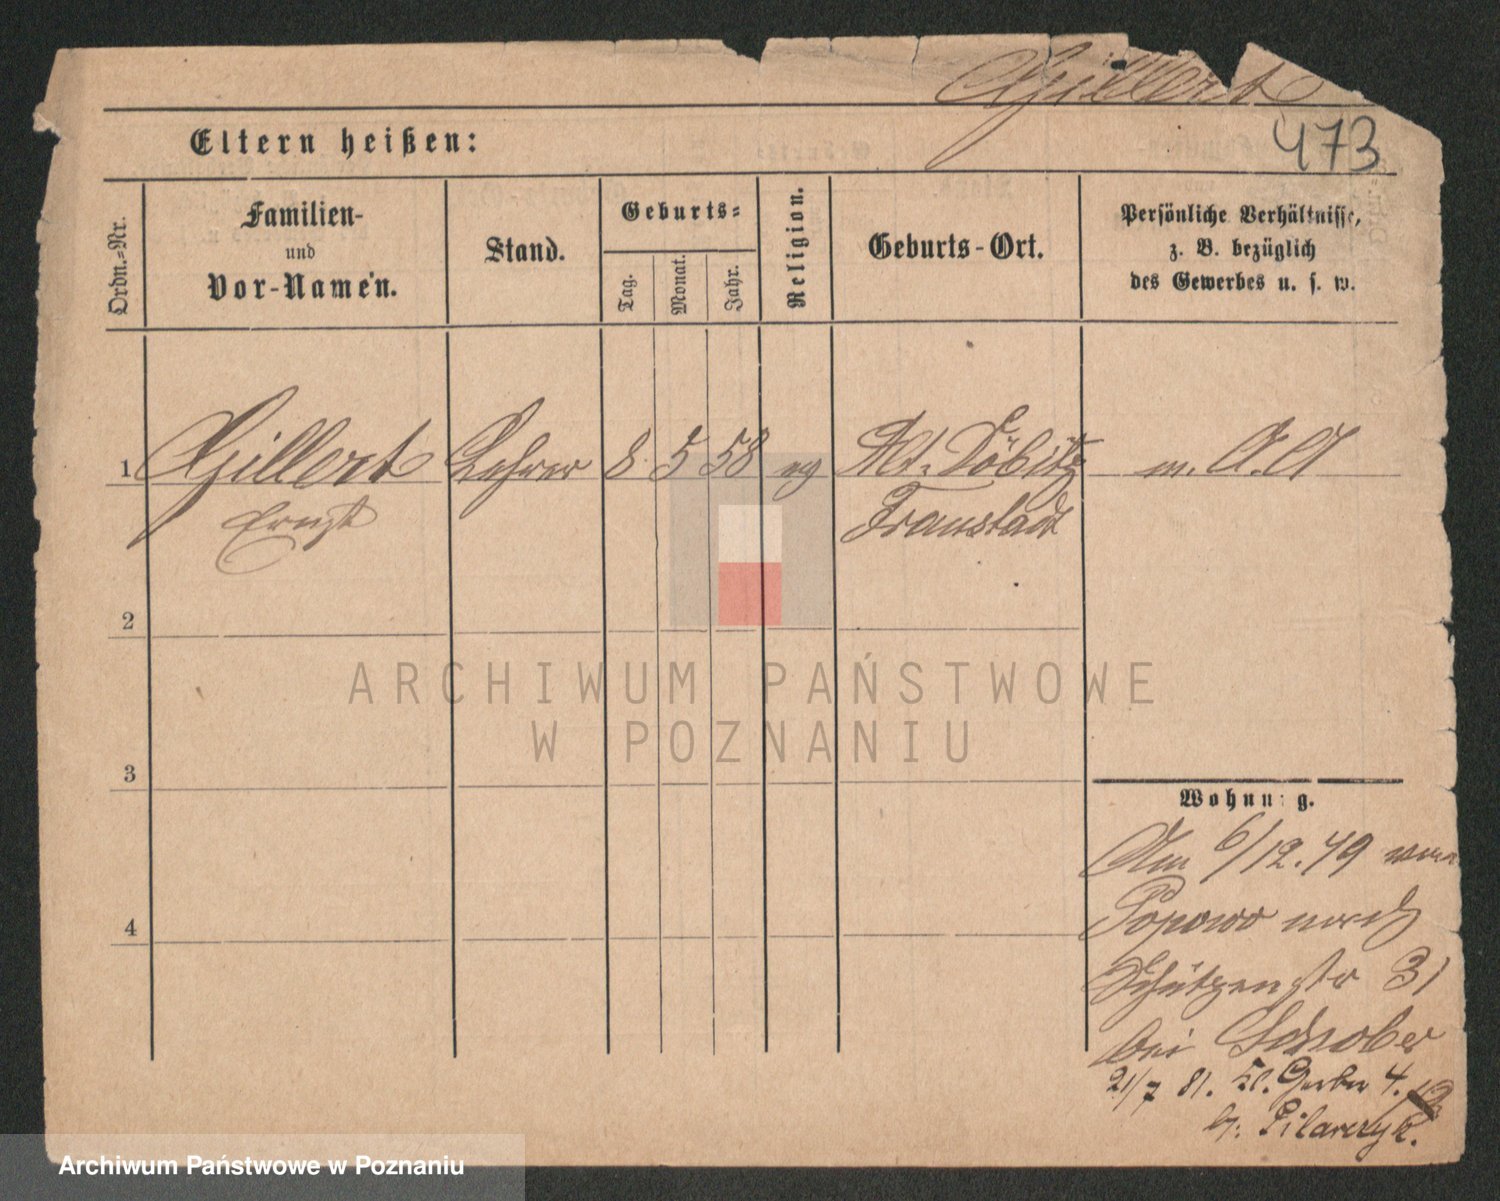 Gillert
473
Eltern heißen:
Ordn.-Nr.
Familien-
und
Vor-Namen.
Stand.
Geburts-
Tag.
Monat.
Jahr.
Religion.
Geburts-Ort.
Persönliche Verhältnisse,
z. B. bezüglich
des Gewerbes u. s. w.
1 Gillert Lehrer 8 5 58 ev m. A. A
Ernst Fraustadt
2
3
4
Wohnung.
Am 6/12. 79 von
Popowo nach
Schützenstr 31
bei Schober
21/7 81. Kl. Gerber 4.
b. Pilarczyk.
ARCHIWUM PAŃSTWOWE
W POZNANIU
Archiwum Państwowe w Poznaniu